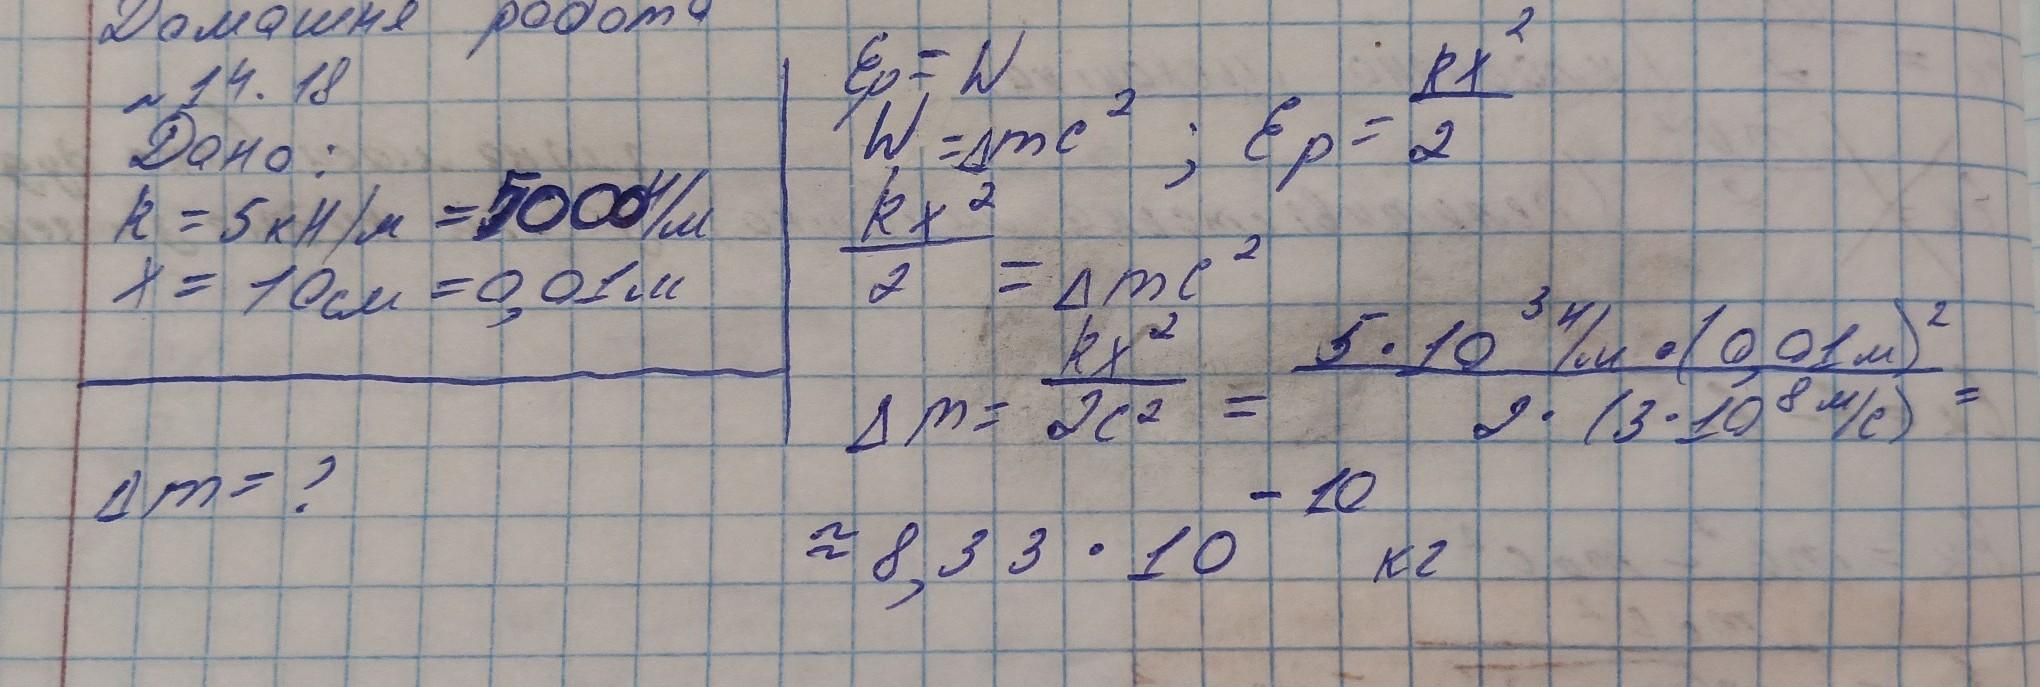 Домашня робота
~ 14.18
Дано:
k = 5кН/м = 5000Н/м
x = 10см = 0,01м
Δm = ?
Ep = W
W = Δmc² ; Ep = kx²/2
kx²/2 = Δmc²
Δm = kx²/2c² = 5·10³Н/м·(0,01м)²/2·(3·10⁸м/с) =
≈ 8,33·10⁻¹⁰ кг